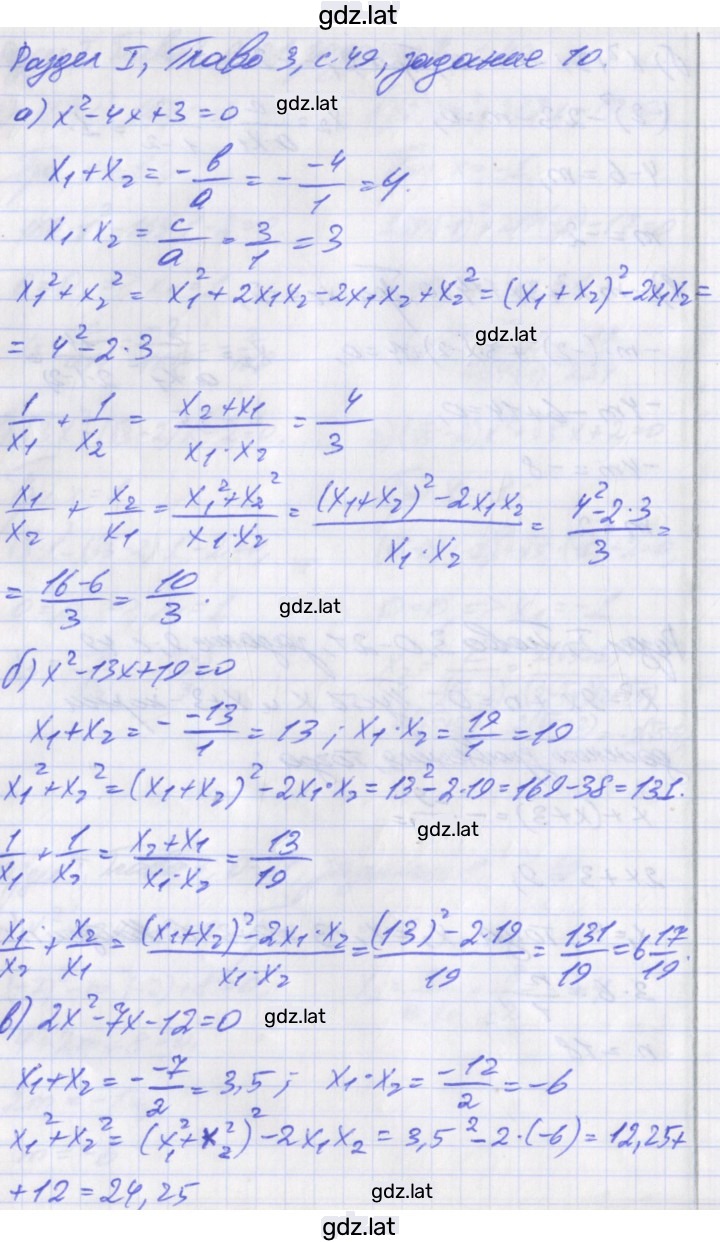 gdz.lat
Раздел I, Глава 3, с. 49, задание 10.
а) x²-4x+3=0
gdz.lat
x₁+x₂ = -b/a = - -4/1 = 4.
x₁·x₂ = c/a = 3/1 = 3
x₁²+x₂² = x₁²+2x₁x₂-2x₁x₂+x₂² = (x₁+x₂)²-2x₁x₂ =
gdz.lat
= 4²-2·3
1/x₁ + 1/x₂ = (x₂+x₁)/(x₁·x₂) = 4/3
x₁/x₂ + x₂/x₁ = (x₁²+x₂²)/(x₁·x₂) = ((x₁+x₂)²-2x₁x₂)/(x₁·x₂) = (4²-2·3)/3 =
= (16-6)/3 = 10/3.
gdz.lat
б) x²-13x+19=0
x₁+x₂ = - -13/1 = 13; x₁·x₂ = 19/1 = 19
x₁²+x₂² = (x₁+x₂)²-2x₁·x₂ = 13²-2·19 = 169-38 = 131.
gdz.lat
1/x₁ + 1/x₂ = (x₂+x₁)/(x₁·x₂) = 13/19
x₁/x₂ + x₂/x₁ = ((x₁+x₂)²-2x₁·x₂)/(x₁·x₂) = ((13)²-2·19)/19 = 131/19 = 6 17/19.
в) 2x²-7x-12=0
gdz.lat
x₁+x₂ = - -7/2 = 3,5; x₁·x₂ = -12/2 = -6
x₁²+x₂² = (x₁²+x₂²)²-2x₁x₂ = 3,5²-2·(-6) = 12,25+
+12 = 24,25
gdz.lat
gdz.lat